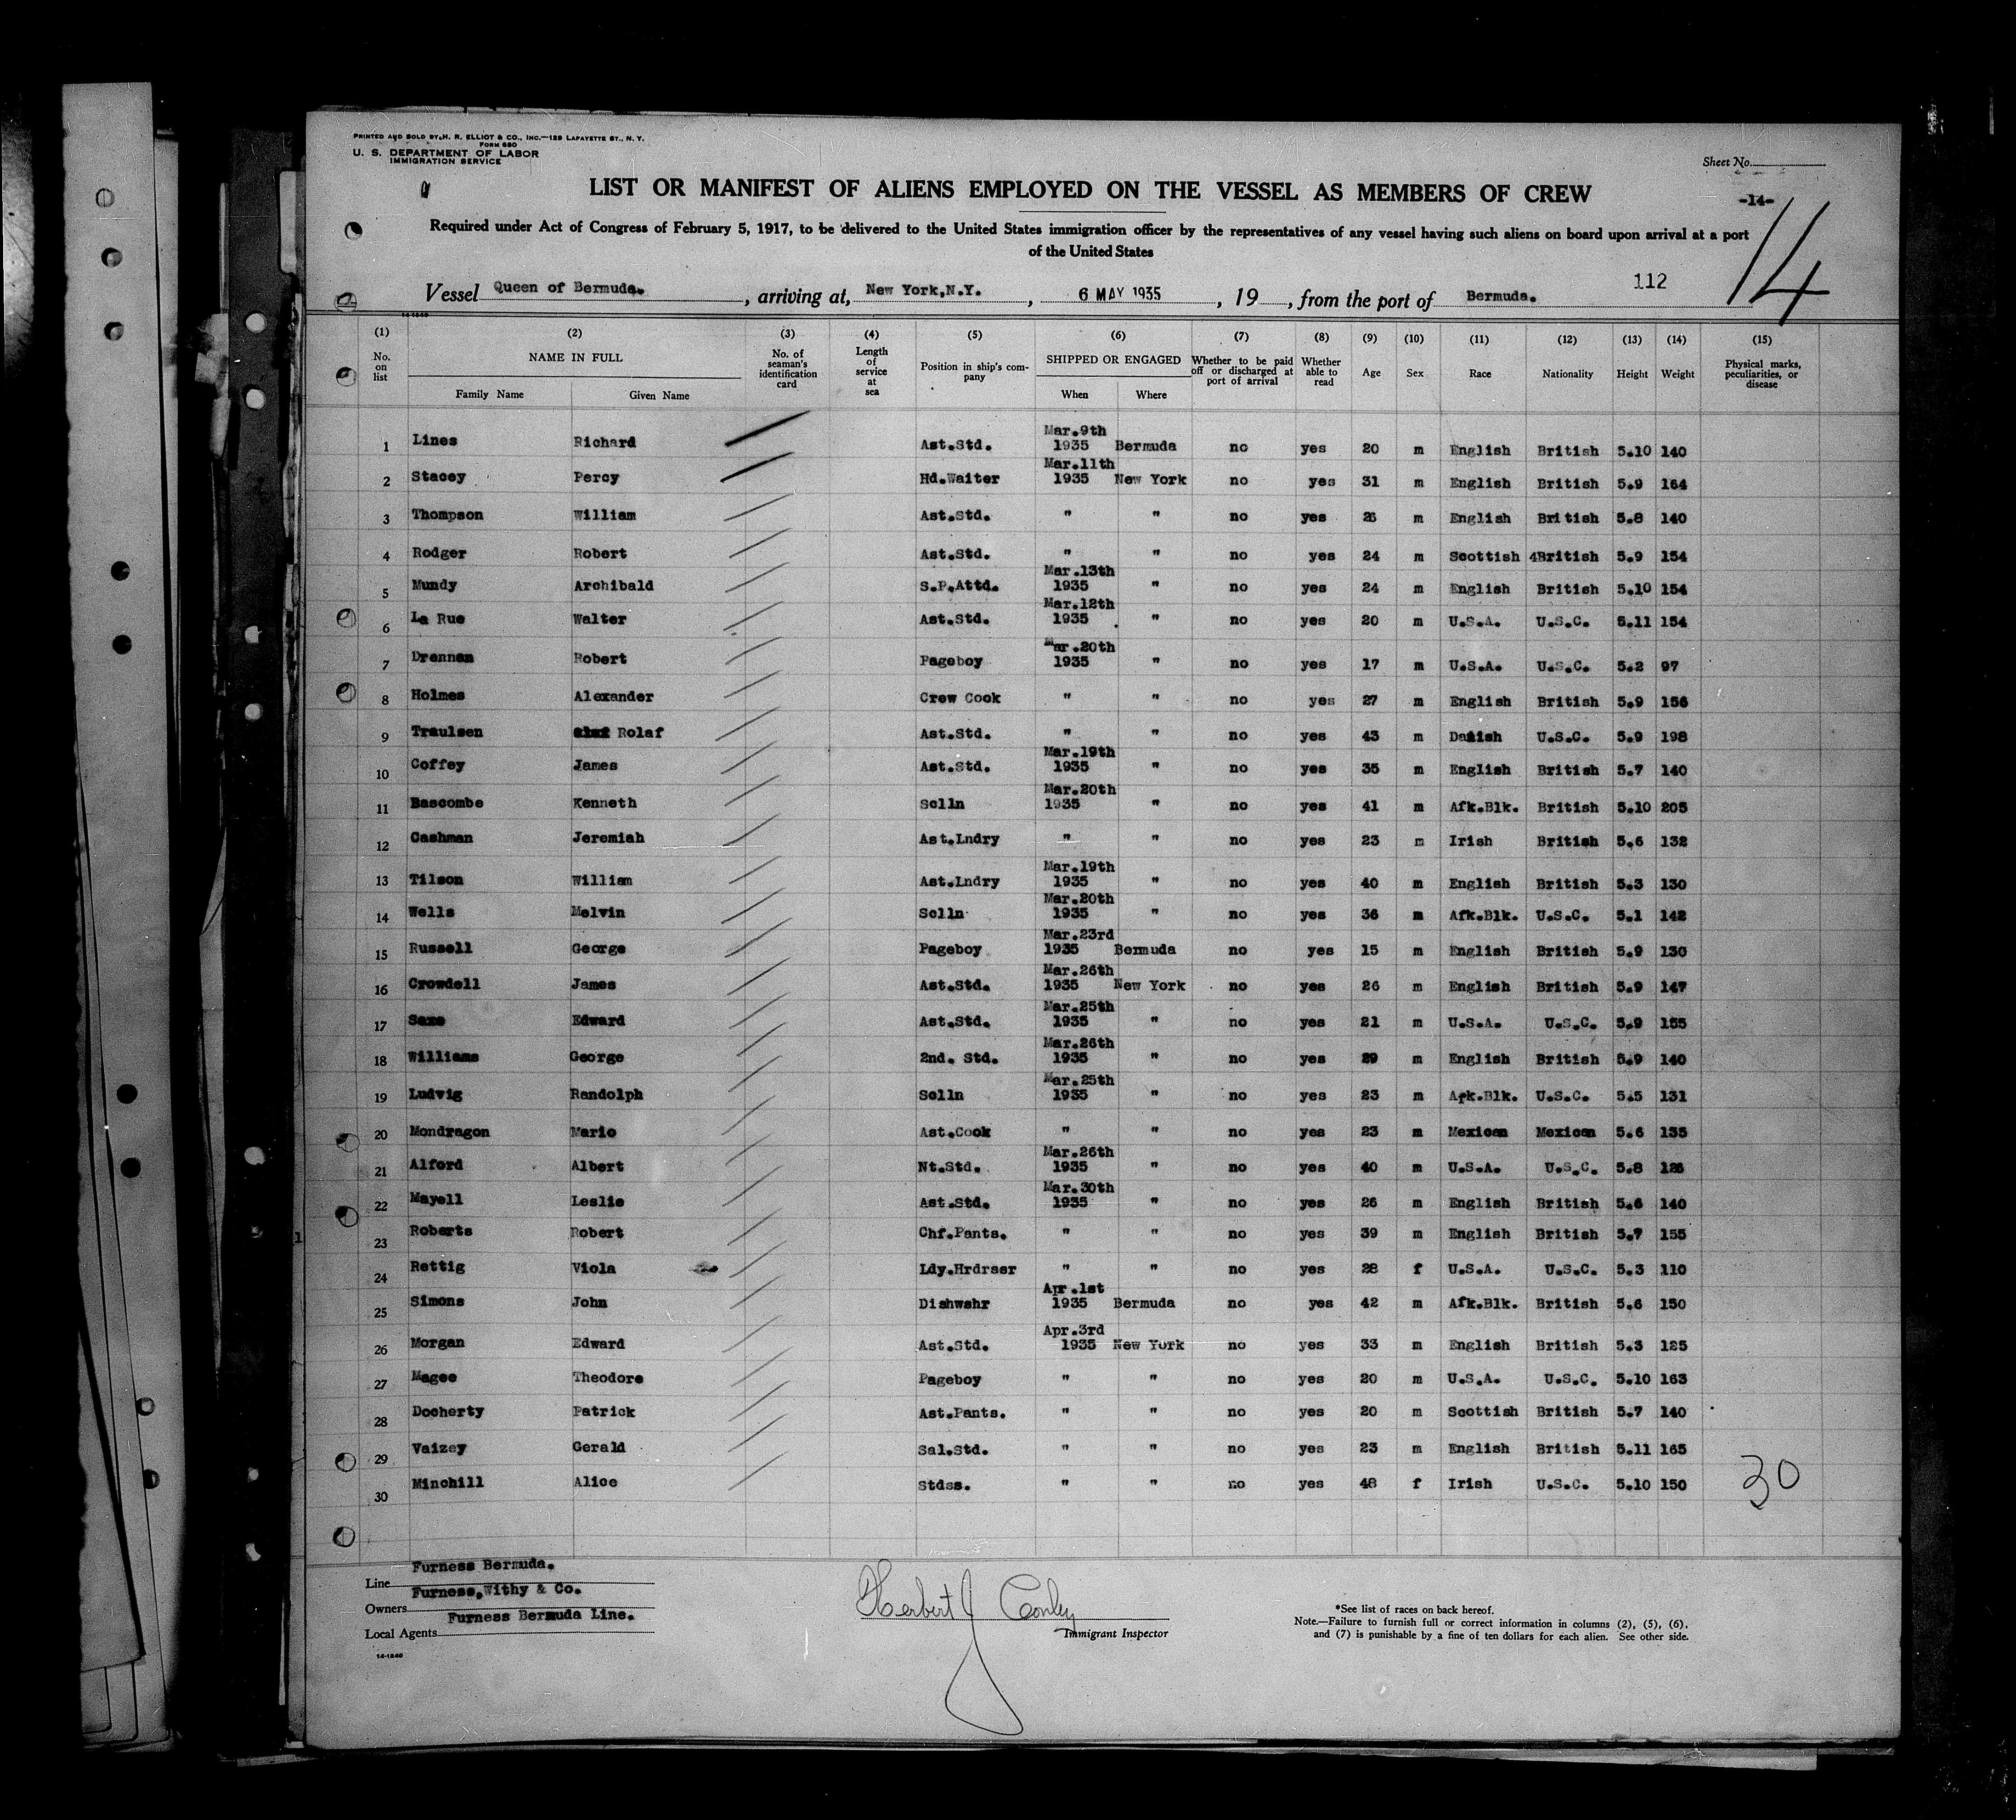 PRINTED AND SOLD BY H. R. ELLIOT & CO., INC.—129 LAFAYETTE ST., N. Y.
FORM 680
U. S. DEPARTMENT OF LABOR
IMMIGRATION SERVICE
Sheet No.
LIST OR MANIFEST OF ALIENS EMPLOYED ON THE VESSEL AS MEMBERS OF CREW
-14-
14
Required under Act of Congress of February 5, 1917, to be delivered to the United States immigration officer by the representatives of any vessel having such aliens on board upon arrival at a port
of the United States
112
Vessel Queen of Bermuda. , arriving at, New York,N.Y. , 6 MAY 1935 , 19 , from the port of Bermuda.
14-1240
(1) (2) (3) (4) (5) (6) (7) (8) (9) (10) (11) (12) (13) (14) (15)
No. on list NAME IN FULL Family Name Given Name No. of seaman's identification card Length of service at sea Position in ship's company SHIPPED OR ENGAGED When Where Whether to be paid off or discharged at port of arrival Whether able to read Age Sex Race Nationality Height Weight Physical marks, peculiarities, or disease
1 Lines Richard Ast.Std. Mar.9th 1935 Bermuda no yes 20 m English British 5.10 140
2 Stacey Percy Hd.Waiter Mar.11th 1935 New York no yes 31 m English British 5.9 164
3 Thompson William Ast.Std. " " no yes 26 m English British 5.8 140
4 Rodger Robert Ast.Std. " " no yes 24 m Scottish 4British 5.9 154
5 Mundy Archibald S.P.Attd. Mar.13th 1935 " no yes 24 m English British 5.10 154
6 La Rue Walter Ast.Std. Mar.12th 1935 " no yes 20 m U.S.A. U.S.C. 5.11 154
7 Drennan Robert Pageboy Mar.20th 1935 " no yes 17 m U.S.A. U.S.C. 5.2 97
8 Holmes Alexander Crew Cook " " no yes 27 m English British 5.9 156
9 Traulsen Rolaf Ast.Std. " " no yes 43 m Danish U.S.C. 5.9 198
10 Coffey James Ast.Std. Mar.19th 1935 " no yes 35 m English British 5.7 140
11 Bascombe Kenneth Sclln Mar.20th 1935 " no yes 41 m Afk.Blk. British 5.10 205
12 Cashman Jeremiah Ast.Lndry " " no yes 23 m Irish British 5.6 132
13 Tilson William Ast.Lndry Mar.19th 1935 " no yes 40 m English British 5.3 130
14 Wells Melvin Sclln Mar.20th 1935 " no yes 36 m Afk.Blk. U.S.C. 5.1 142
15 Russell George Pageboy Mar.23rd 1935 Bermuda no yes 15 m English British 5.9 130
16 Crowdell James Ast.Std. Mar.26th 1935 New York no yes 26 m English British 5.9 147
17 Saxe Edward Ast.Std. Mar.25th 1935 " no yes 21 m U.S.A. U.S.C. 5.9 155
18 Williams George 2nd. Std. Mar.26th 1935 " no yes 29 m English British 5.9 140
19 Ludvig Randolph Sclln Mar.25th 1935 " no yes 23 m Afk.Blk. U.S.C. 5.5 131
20 Mondragon Mario Ast.Cook " " no yes 23 m Mexican Mexican 5.6 135
21 Alford Albert Nt.Std. Mar.26th 1935 " no yes 40 m U.S.A. U.S.C. 5.8 126
22 Mayell Leslie Ast.Std. Mar.30th 1935 " no yes 26 m English British 5.6 140
23 Roberts Robert Chf.Pants. " " no yes 39 m English British 5.7 155
24 Rettig Viola Ldy.Hrdrssr " " no yes 28 f U.S.A. U.S.C. 5.3 110
25 Simons John Dishwshr Apr.1st 1935 Bermuda no yes 42 m Afk.Blk. British 5.6 150
26 Morgan Edward Ast.Std. Apr.3rd 1935 New York no yes 33 m English British 5.3 125
27 Magee Theodore Pageboy " " no yes 20 m U.S.A. U.S.C. 5.10 163
28 Docherty Patrick Ast.Pants. " " no yes 20 m Scottish British 5.7 140
29 Vaizey Gerald Sal.Std. " " no yes 23 m English British 5.11 165
30 Minchill Alice Stdss. " " no yes 48 f Irish U.S.C. 5.10 150
30
Line Furness Bermuda.
Owners Furness,Withy & Co.
Local Agents Furness Bermuda Line.
14-1240
Herbert J Conley
Immigrant Inspector
*See list of races on back hereof.
Note.—Failure to furnish full or correct information in columns (2), (5), (6).
and (7) is punishable by a fine of ten dollars for each alien. See other side.